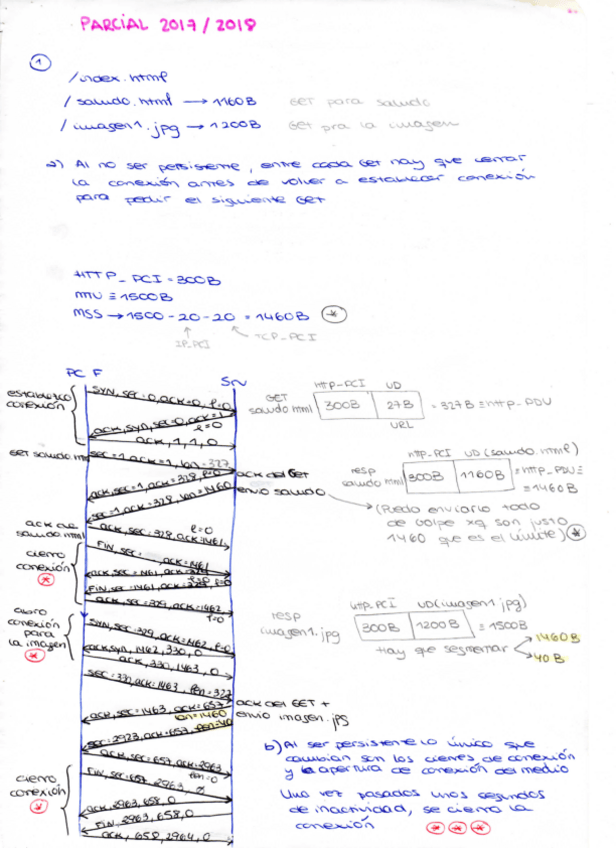 PARCIAL 2017/2018
1
/index.html
/saludo.html → 1160B GET para saludo
/imagen1.jpg → 1200B GET pra la imagen
a) Al no ser persistente, entre cada Get hay que cerrar
la conexión antes de volver a establecer conexión
para pedir el siguiente GET
HTTP_PCI = 300B
MTU ≡ 1500B
MSS → 1500 - 20 - 20 = 1460B *
IP_PCI TCP_PCI
PC F Srv
establezco conexión
SYN, sec=0, ack=0, l=0
ack, syn, sec=0, ack=1
l=0
ack, 1, 1, 0
GET saludo.html
HTTP-PCI UD
300B 27B = 327B ≡ HTTP-PDU
URL
GET saludo.html
sec=1, ack=1, len=327
ack, sec=1, ack=328, l=0
ack del GET
sec=1, ack=328, len=1460
envío saludo
HTTP-PCI UD (saludo.html)
resp saludo.html 300B 1160B ≡ HTTP-PDU ≡
≡ 1460B
(Puedo enviarlo todo
de golpe xq son justo
1460 que es el límite) *
ack de saludo.html
ack, sec=328, ack=1461
l=0
cierro conexión *
FIN, sec=
ack=1461
ack, sec=1461, ack=329
FIN, sec=1461, ack=329, l=0
ack, sec=329, ack=1462
l=0
abro conexión para la imagen *
SYN, sec=329, ack=1462, l=0
ack, syn, 1462, 330, 0
ack, 330, 1463, 0
HTTP-PCI UD(imagen1.jpg)
resp imagen1.jpg 300B 1200B ≡ 1500B
Hay que segmentar
1460B
40B
sec=330, ack=1463, len=327
ack, sec=1463, ack=657
len=1460
ack del GET +
envío imagen.jpg
sec=2923, ack=657, len=40
ack, sec=657, ack=2963
len=0
cierro conexión *
FIN, sec=657, 2963, 0
ack, 2963, 658, 0
FIN, 2963, 658, 0
ack, 658, 2964, 0
b) Al ser persistente lo único que
cambian son los cierres de conexión
y la apertura de conexión del medio
Una vez pasados unos segundos
de inactividad, se cierra la
conexión * * *